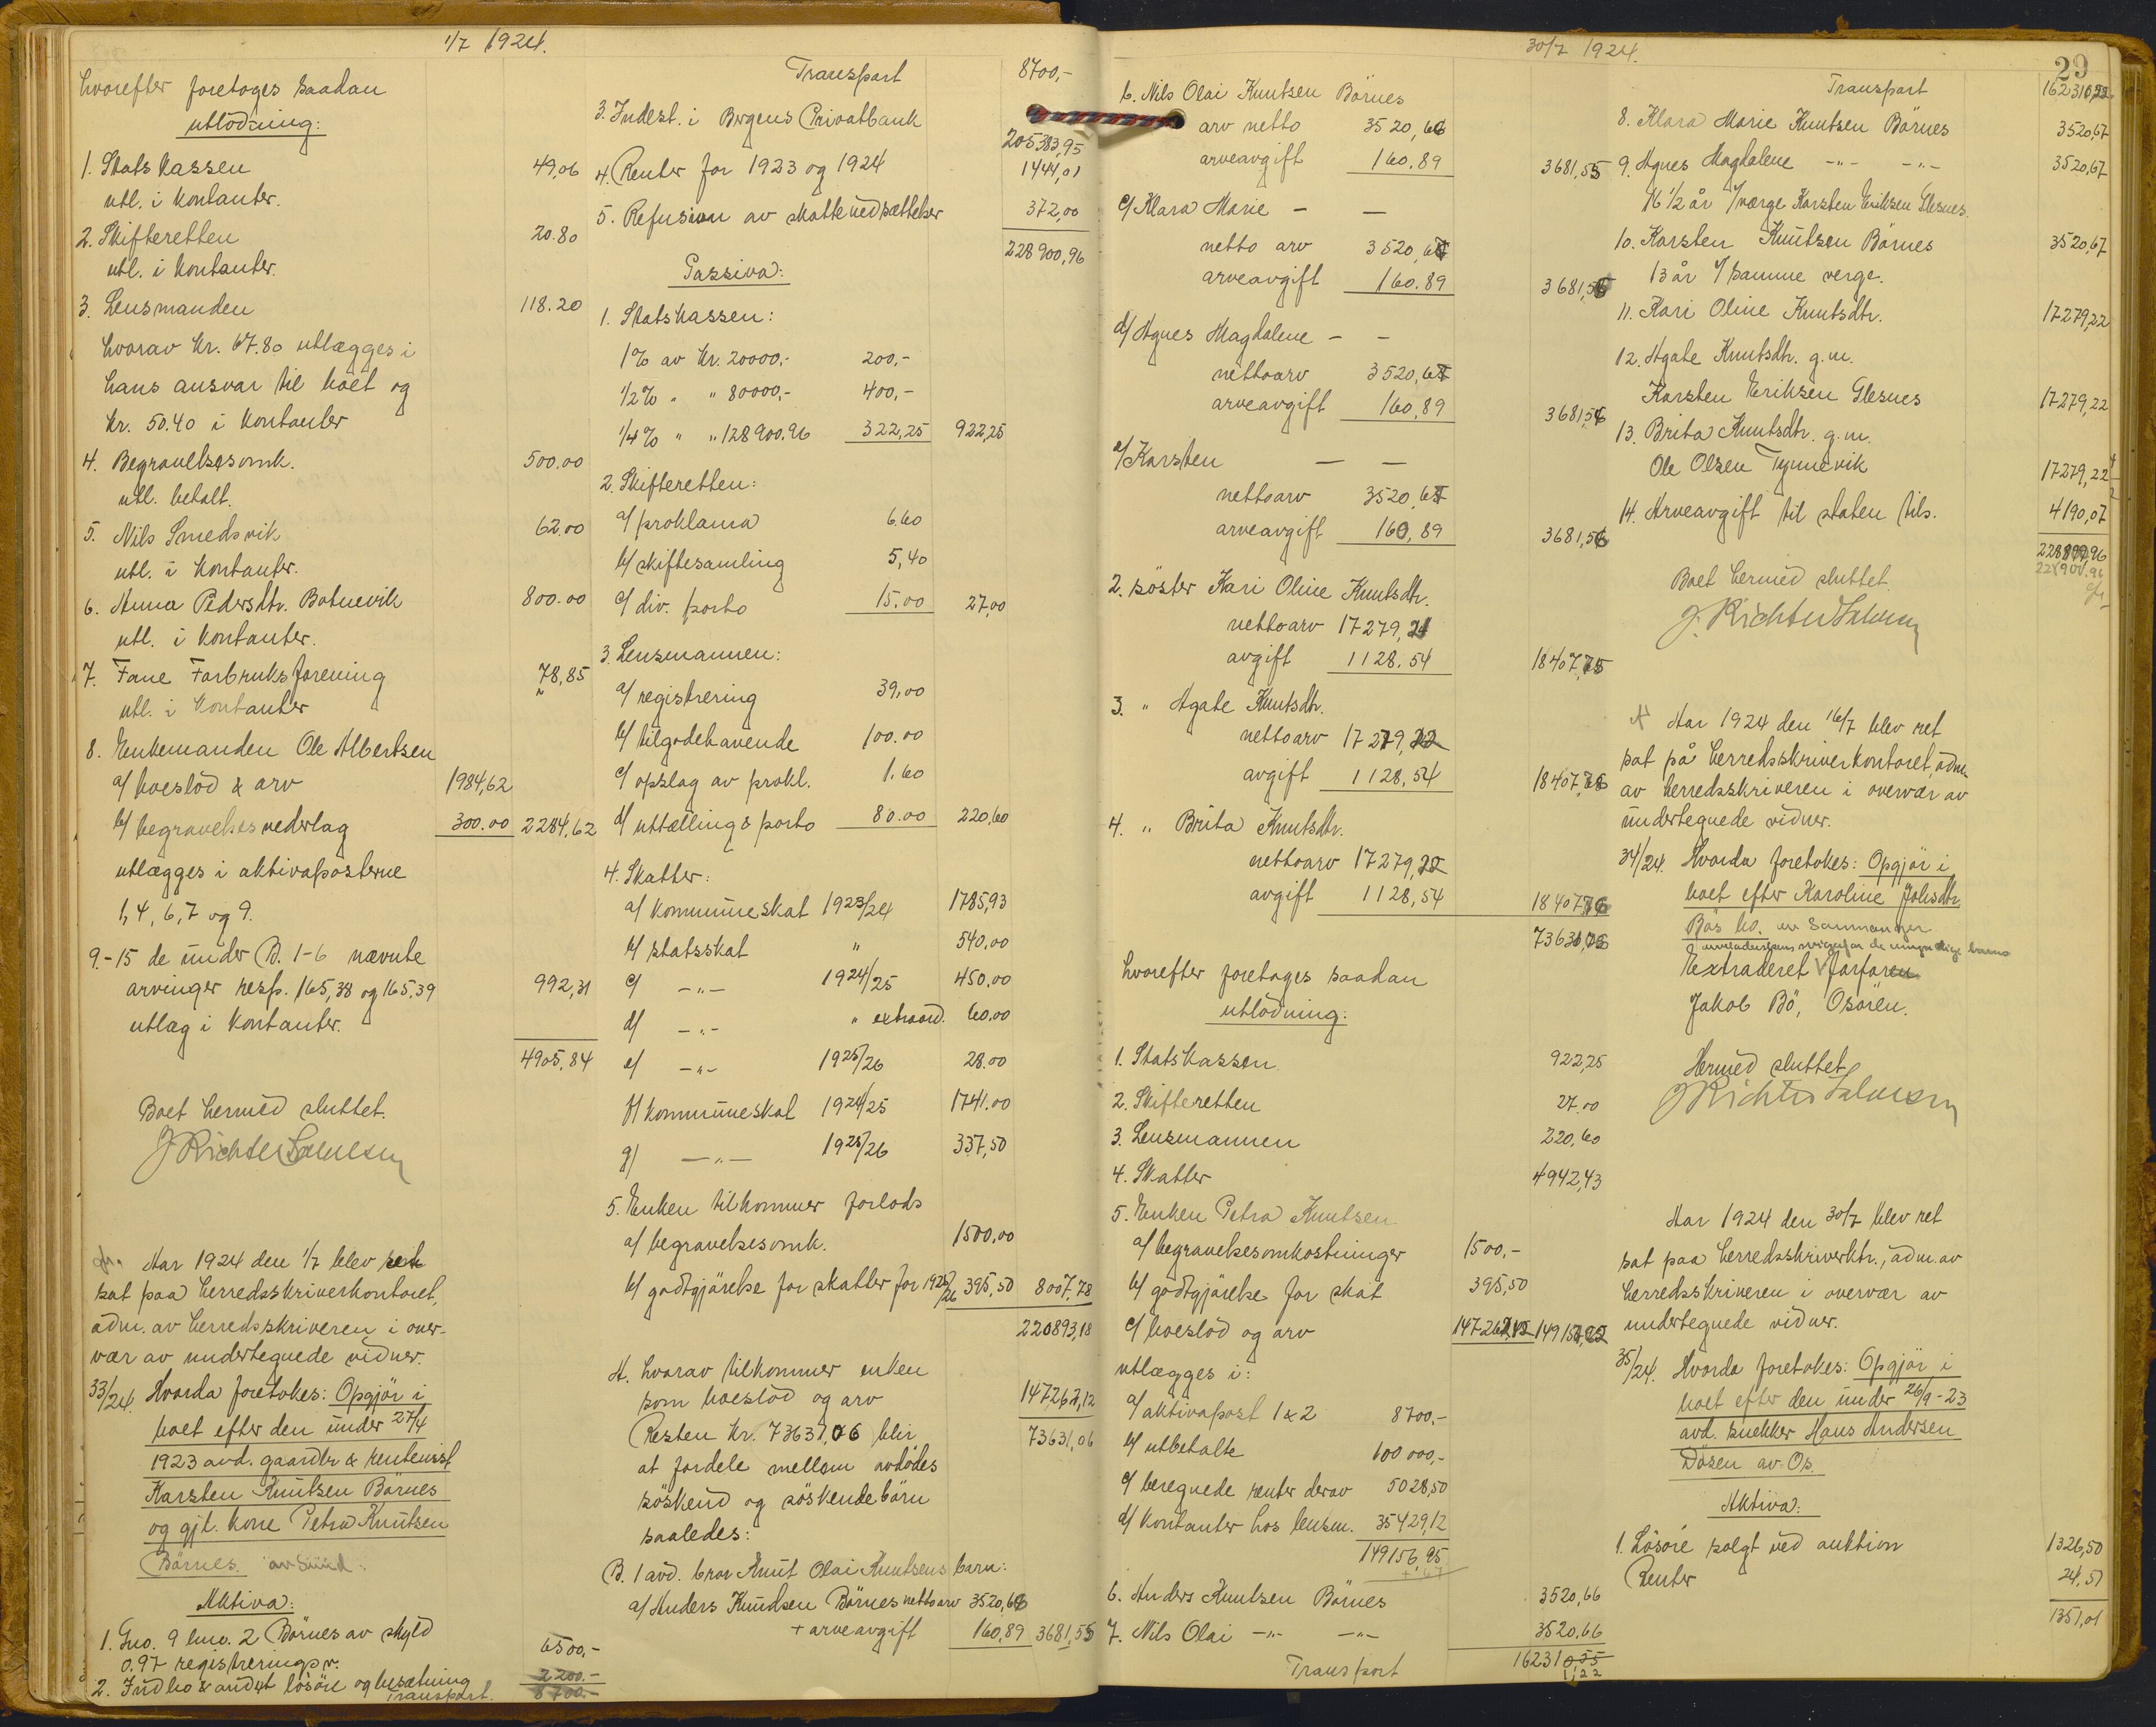 1/7 1924.
hvorefter foretages saadan
utlodning:
1. Statskassen 49,06
utl. i kontanter.
2. Skifteretten 20.80
utl. i kontanter.
3. Lensmanden 118.20
hvorav kr. 67.80 utlægges i
hans ansvar til boet og
kr. 50.40 i kontanter
4. Begravelsesomk. 500.00
utl. betalt.
5. Nils Smedsvik 62.00
utl. i kontanter.
6. Anna Pedersdtr. Botnevik 800.00
utl. i kontanter.
7. Fane Forbruksforening 78,85
utl. i kontanter
8. Enkemanden Ole Albertsen
a/ boeslod & arv 1984,62
b/ begravelsesvederlag 300.00 2284,62
utlægges i aktivaposterne
1, 4, 6, 7 og 9.
9.-15 de under B. 1-6 nævnte
arvinger resp. 165,38 og 165,39 992,31
utlæg i kontanter.
4905,84
Boet hermed sluttet.
J Richter Salvesen
Aar 1924 den 1/7 blev ret
sat paa herredsskriverkontoret,
adm. av herredsskriveren i over-
vær av undertegnede vidner.
33/24. Hvorda foretokes: Opgjör i
boet efter den under 27/4
1923 avd. gaardbr & rentenist
Karsten Knutsen Börnes
og gjl. kone Petra Knutsen
Börnes av Sund.
Aktiva:
1. Gno. 9 bno. 2 Börnes av skyld
0.97 registreringsv. 6500,-
2. Indbo & andet lösöre og besætning 2200.-
Transport. 8700.-
Transport 8700,-
3. Indest. i Bergens Privatbank 205383,95
4. Renter for 1923 og 1924 1444,01
5. Refusion av skattenedsættelser 372,00
228900,96
Passiva:
1. Statskassen:
1% av kr. 20000.- 200,-
1/2% " " 80000,- 400,-
1/4% " " 128900.96 322,25 922,25
2. Skifteretten:
a/ proklama 6.60
b/ skiftesamling 5,40
c/ div. porto 15.00 27,00
3. Lensmannen:
a/ registrering 39,00
b/ tilgodehavende 100.00
c/ opslag av prokl. 1.60
d/ uttælling & porto 80.00 220,60
4. Skatter:
a/ kommuneskat 1923/24 1785,93
b/ statsskat " 540.00
c/ -"- 1924/25 450.00
d/ -"- " extraord. 60.00
e/ -"- 1925/26 28.00
f/ kommuneskat 1924/25 1741.00
g/ -"- 1925/26 337,50
5. Enken tilkommer forlods
a/ begravelsesomk. 1500,00
b/ godtgjörelse for skatter for 1925/26 395,50 8007,78
220893,18
A. hvorav tilkommer enken
som boeslod og arv 147262,12
Resten kr. 73631,06 blir 73631,06
at fordele mellem avdödes
söskend og söskendebörn
saaledes:
B. 1 avd. bror Knut Olai Knutsens barn:
a/ Anders Knudsen Börnes nettoarv 3520,66
+ arveavgift 160,89 3681,55
30/7 1924.
29
b. Nils Olai Knutsen Börnes
arv netto 3520,66
arveavgift 160.89 3681,55
c/ Klara Marie - -
netto arv 3520,67
arveavgift 160.89 3681,56
d/ Agnes Magdalene - -
nettoarv 3520,67
arveavgift 160,89 3681,56
e/ Karsten - -
nettoarv 3520,67
arveavgift 160,89 3681,56
2. söster Kari Oline Knutsdtr.
nettoarv 17279,21
avgift 1128.54 18407,75
3. " Agate Knutsdtr.
nettoarv 17279,22
avgift 1128,54 18407,76
4. " Brita Knutsdtr.
nettoarv 17279,22
avgift 1128,54 18407,76
73631,06
hvorefter foretages saadan
utlodning:
1. Statskassen 922,25
2. Skifteretten 27.00
3. Lensmannen 220,60
4. Skatter 4942,43
5. Enken Petra Knutsen
a/ begravelsesomkostninger 1500,-
b/ godtgjörelse for skat 395,50
c/ boeslod og arv 147262,12 149157,62
utlægges i:
a/ aktivapost 1 & 2 8700,-
b/ utbetalt 100 000,-
c/ beregnede renter derav 5028,50
d/ kontanter hos lensm. 35429,12
149156,95
6. Anders Knutsen Börnes 3520,66
7. Nils Olai -"- -"- 3520,66
Transport 162311,22
Transport 162311,22
8. Klara Marie Knutsen Börnes 3520,67
9. Agnes Magdalene -"- -"- 3520,67
16 1/2 år v/værge Karsten Eriksen Glesnes.
10. Karsten Knutsen Börnes 3520,67
13 år v/ samme verge.
11. Kari Oline Knutsdtr. 17279,22
12. Agate Knutsdtr. g.m.
Karsten Eriksen Glesnes 17279,22
13. Brita Knutsdtr. g.m.
Ole Olsen Tynnevik 17279,22
14. Arveavgift til staten tils. 4190,07
228900.96
Boet hermed sluttet
J. Richter Salvesen
Aar 1924 den 16/7 blev ret
sat på herredsskriverkontoret, adm.
av herredsskriveren i overvær av
undertegnede vidner.
34/24. Hvorda foretokes: Opgjör i
boet efter Karoline Johsdtr.
Bös bo. av Samnanger
Extraderet farfaren
Jakob Bö, Osören.
Hermed sluttet
J Richter Salvesen
Aar 1924 den 30/7 blev ret
sat paa herredsskriverktr., adm. av
herredsskriveren i overvær av
undertegnede vidner.
35/24. Hvorda foretokes: Opgjör i
boet efter den under 26/9-23
avd. snekker Hans Andersen
Dösen av Os.
Aktiva:
1. Lösöre solgt ved auktion 1326,50
Renter 24,51
1351,01